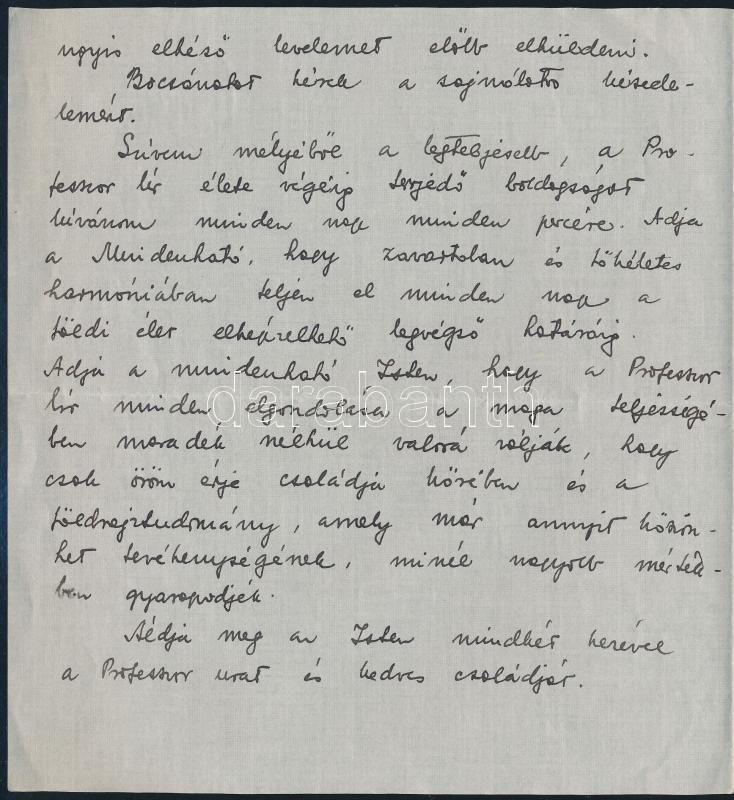 ugyis elkéső levelemet előbb elküldeni.
Bocsánatot kérek a sajnálatos késede-
lemért.
Szivem mélyéből a legteljesebb, a Pro-
fesszor Úr élete végéig terjedő boldogságot
kívánom minden nap minden percére. Adja
a Mindenható, hogy zavartalan és tökéletes
harmóniában teljen el minden nap a
földi élet elképzelhető legvégső határáig.
Adja a mindenható Isten, hogy a Professzor
Úr minden elgondolása a maga teljességé-
ben maradék nélkül valóra váljék, hogy
csak öröm érje családja körében és a
földrajztudomány, amely már annyit köszön-
het tevékenységének, minél nagyobb mérték-
ben gyarapodjék.
Áldja meg az Isten mindkét kezével
a Professzor urat és kedves családját.
darabanth